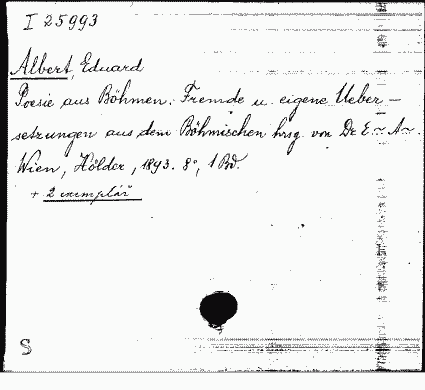 I 25993
Albert, Eduard
Poesie aus Böhmen. Fremde u. eigene Ueber-
setzungen aus dem Böhmischen hrsg. von Dr. E. ~ A ~.
Wien, Hölder, 1893. 8°, 1 Bd.
+ 2 exemplář
S